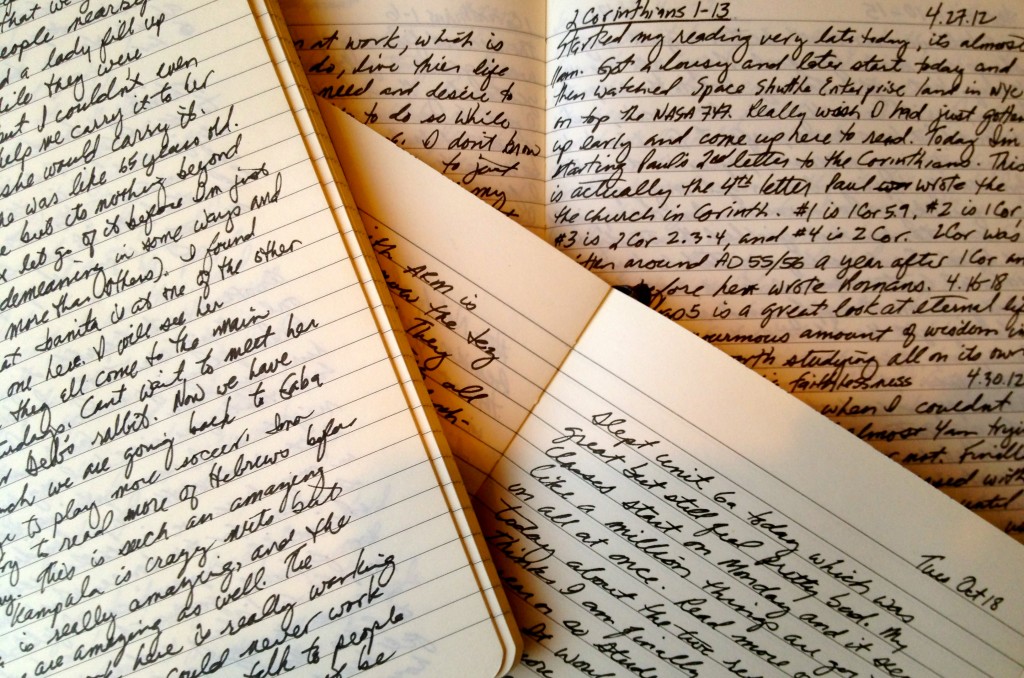 that we
people nearby
d a lady fill up
while they were
but I couldn't even
help me carry it to her
she would carry it.
he was like 65 years old.
e but its nothing beyond
let go of it before I'm just
demeaning in some ways and
more than others). I found
at Juanita is at one of the other
one here. I will see her
they all come to the main
Cant wait to meet her
Deb's rabbit. Now we have
we are going back to Gaba
to play more soccer.
to read more of Hebrews before
This is such an amazing
Kampala is crazy nuts but
is really amazing, and the
are amazing as well. The
here is really working
could never work
talk to people
be
at work, which is
do, live their life
need and desire to
to do so while
I don't know
to just
my
is
the
They
all
2 Corinthians 1-13 4.27.12
Started my reading very late today, its almost
11am. Got a lousy and later start today and
then watched Space Shuttle Enterprise land in NYC
on top the NASA 747. Really wish I had just gotten
up early and come up here to read. Today I'm
starting Paul's 2nd letter to the Corinthians. This
is actually the 4th letter Paul wrote the
the church in Corinth. #1 is 1Cor 5.9, #2 is 1Cor,
#3 is 2Cor 2.3-4, and #4 is 2Cor. 2Cor was
around AD 55/56 a year after 1Cor an
before he wrote Romans. 4.16-18
5 is a great look at eternal li
amount of wisdom i
studying all on its own
faithlessness 4.30.12
when I couldnt
almost 4am trying
not. Finall
with
until
Tues Oct 18
Slept until 6a today which was
great but still feel pretty bad. My
classes start on Monday and it see
like a million things are go
on all at once. Read more
today about the two
Thinks I am finally
as
would